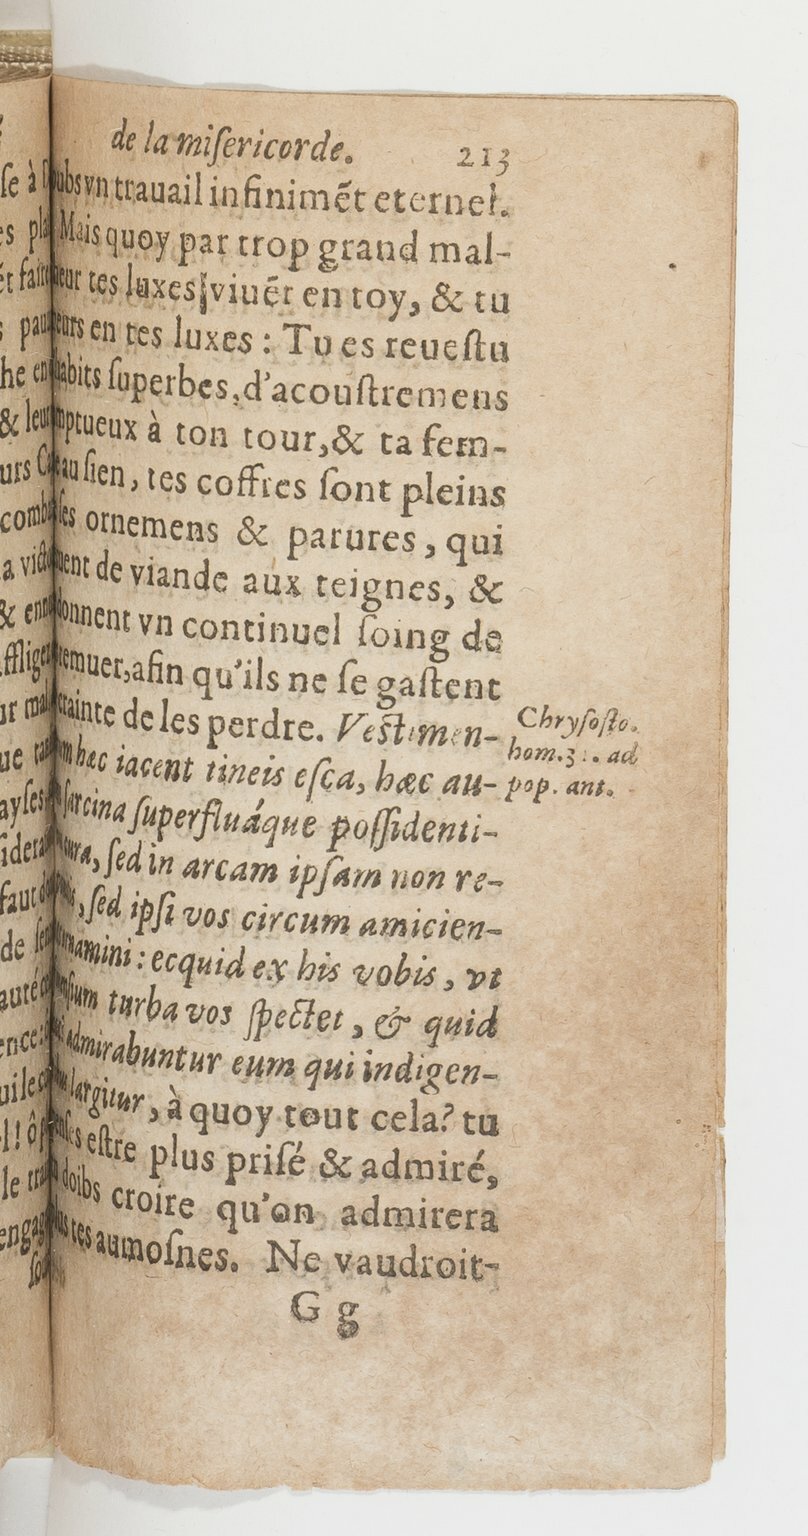 de la miſericorde. 213
ubs vn trauail infinimēt eternel.
Mais quoy par trop grand mal-
eur tes luxes viuēt en toy, & tu
eurs en tes luxes : Tu es reueſtu
abits ſuperbes, d'acouſtremens
mptueux à ton tour, & ta fem-
au ſien, tes coffres ſont pleins
ſes ornemens & parures, qui
ent de viande aux teignes, &
onnent vn continuel ſoing de
remuer, afin qu'ils ne ſe gaſtent
crainte de les perdre. Veſtimen-
hæc iacent tineis eſca, hæc au-
ſarcina ſuperfluáque poſſidenti-
ſed in arcam ipſam non re-
, ſed ipſi vos circum amicien-
amini : ecquid ex his vobis, vt
turba vos ſpectet, & quid
admirabuntur eum qui indigen-
largitur, à quoy tout cela? tu
eſtre plus priſé & admiré,
doibs croire qu'on admirera
tes aumoſnes. Ne vaudroit-
G g
Chryſoſto.
hom. ad
pop. ant.